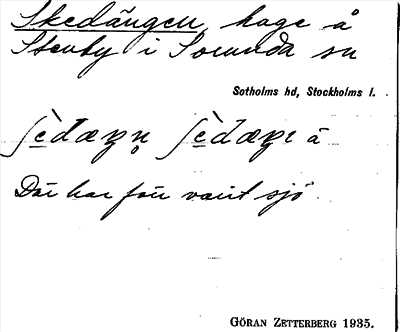 Skedängen, hage å
Stenby i Sorunda sn
Sotholms hd, Stockholms l.
Där har förr varit sjö
GÖRAN ZETTERBERG 1935.